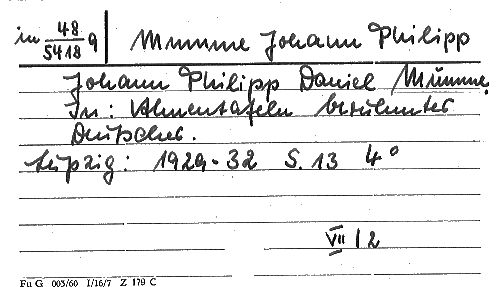 in 48/5418 q | Mumme Johann Philipp
Johann Philipp Daniel Mumme.
In: Ahnentafeln berühmter
Deutscher.
Leipzig: 1929-32 S. 13 4°
VII / 2
Fu G 003/60 I/16/7 Z 179 C